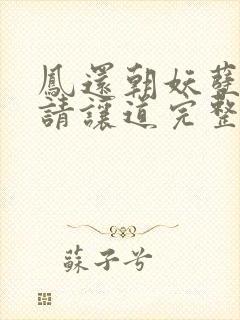 鳳還朝妖孽
請讓道完整
蘇子兮